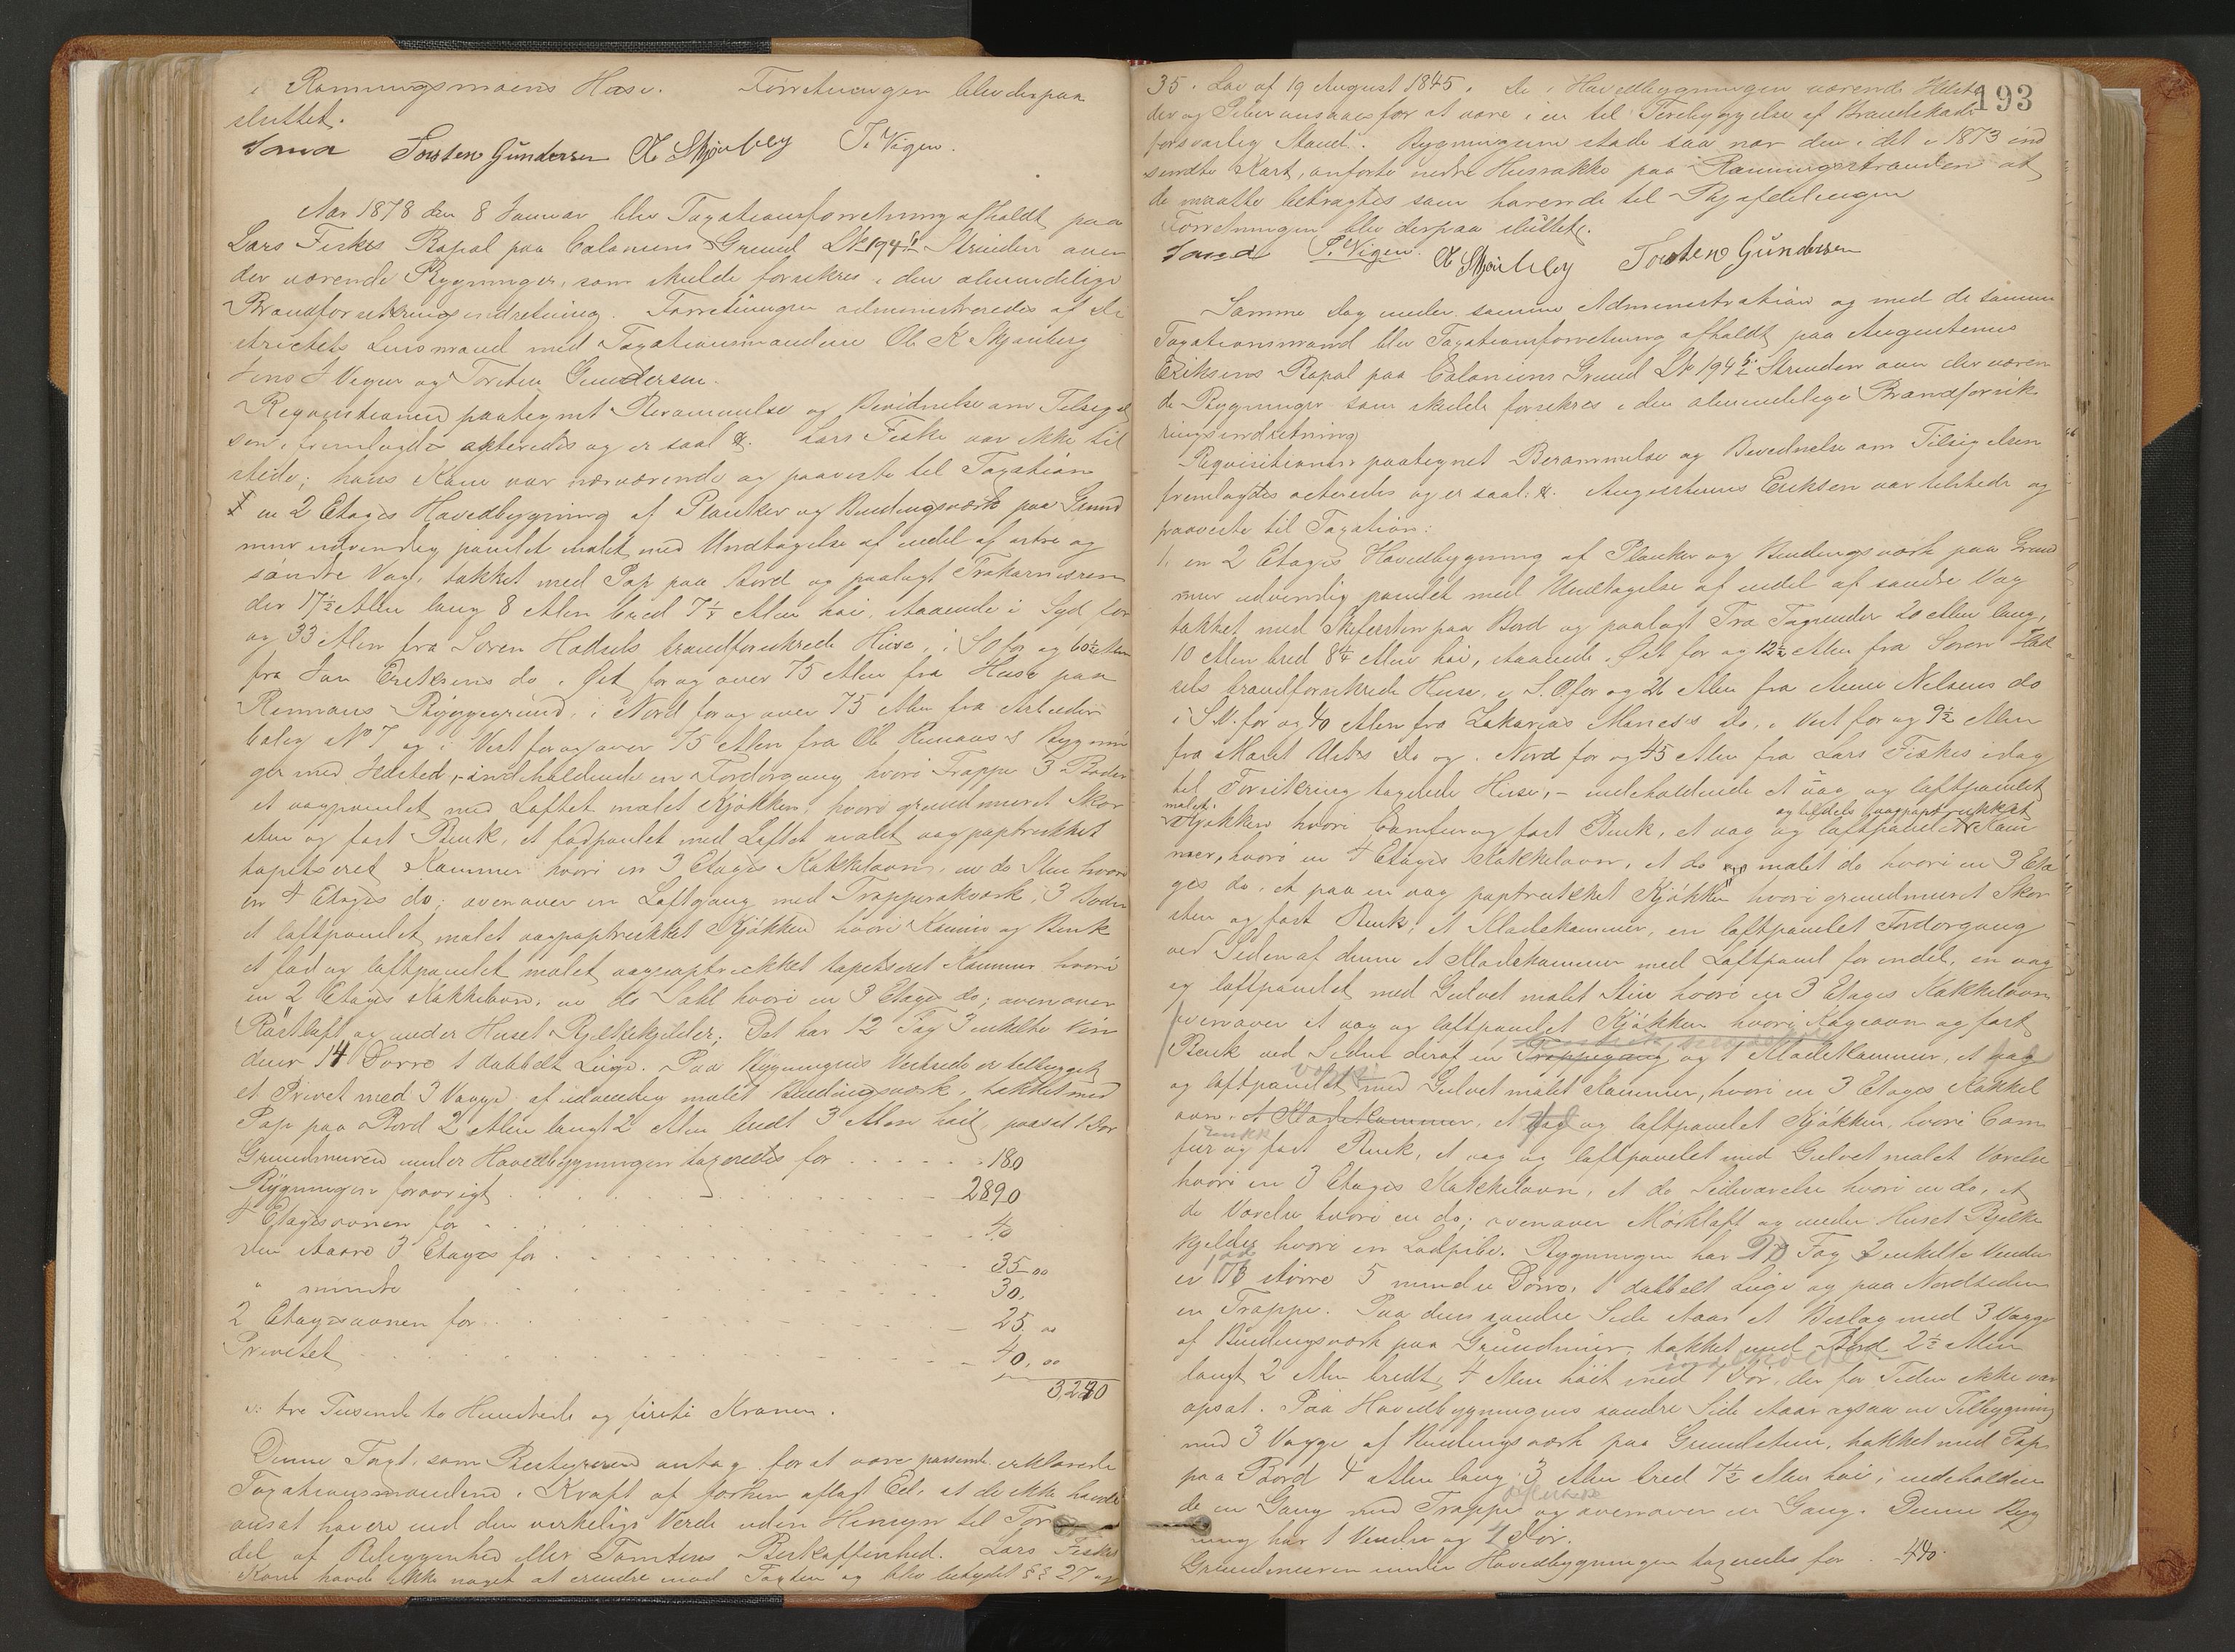 i Rønningsmoens Huse. Forretningen blev derpaa
sluttet.
Sand Torsten Gundersen O K Skjønberg J. Vigen.
Aar 1878 den 8 Januar blev Taxationsforretning afholdt paa
Lars Fiskes Repal paa Coloniens Grund LNo 194 Strinden over
der værende Bygninger, som skulde forsikres i den almindelige
Brandforsikringsindretning. Forretningen administreredes af Di
strictets Lensmand med Taxationsmændene Ole K Skjønberg
Jens J. Vigen og Torsten Gundersen.
Reqvisitionen paategnet Berammelse og Bevidnelse om Tilsigel
sen, fremlagdes akteredes og er saal. &. Lars Fiske var ikke til
stede; hans Kone var nærværende og paaviste til Taxation
1 en 2 Etages Hovedbygning af Planker og Bindingsværk paa Grund
mur udvendig panelet malet med Undtagelse af endel af østre og
søndre Væg, tækket med Pap paa Bord og paalagt
der 17½ Alen lang 8 Alen bred 7½ Alen høi, staaende i Syd for
og 33 Alen fra Søren Hadsels brandforsikrede Huse, i SO for og 60½ Alen
fra Jon Eriksens do. i Øst for og over 75 Alen fra Huse paa
Renmans Byggegrund, i Nord for og over 75 Alen fra Arbeider
bolig No 7 og i Vest for og over 75 Alen fra Ole Renaas's Bygnin
ger med Ildsted, indeholdende en Fordørgang hvori Trappe 3 Boder
et vægpanelet med Loftet malet Kjøkken, hvori grundmuret Skor
sten og fast Bænk, et fodpanelet med Loftet malet vægpaptrukket
tapetseret Kammer hvori en 3 Etages Kakkelovn, en do Stue hvori
en 4 Etages do; ovenover en Loftgang med Trapperækværk, 3 Boder
et loftpanelet malet vægpaptrukket Kjøkken hvori Kamin og Bænk
et fod og loftpanelet malet vægpaptrukket tapetseret Kammer hvori
en 2 Etages Kakkelovn, en do Sahl hvori en 3 Etages do; ovenover
Røstloft og under Huset Bjelkekjelder. Det har 12 Fag 3 enkelte Vin
duer 14 Dørre 1 dobbelt Luge. Paa Bygningens Vestside er tilbygget
et Privet med 3 Vægge af udvendig malet Bindingsværk, tækket med
Pap paa Bord 2 Alen langt 2 Alen bredt 3 Alen høit, paasat 1 Dør
Grundmuren under Hovedbygningen taxeredes for 180
Bygningen forøvrigt 2890
4 Etagesovnen for 40
den større 3 Etages for 35 00
" mindre 30,
2 Etagesovnen for 25. 00
Privetet 40, 00
3240
s: tre Tusende to Hundrede og førti Kroner.
Denne Taxt, som Bestyreren antog for at være passende erklærede
Taxationsmændene i Kraft af forhen aflagt Ed, at de ikke havde
ansat høiere end den virkelige Værdi uden Hensyn til For
del af Beliggenhed eller Tomtens Beskaffenhed. Lars Fiskes
Kone havde ikke noget at erindre mod Taxten og blev betydet §§ 27 og
193
35. Lov af 19 August 1845. De i Hovedbygningen værende Ildste
der og Piber ansaaes for at være i en til Forebyggelse af Brandskade
forsvarlig Stand. Bygningerne stode saa nær den i det i 1873 ind
sendte Kart, anførte nedre Husrække paa Rønningsstranden at
de maatte betragtes som hørende til Byafdelingen
Forretningen blev derpaa sluttet.
Sand J. Vigen. O K Skjønberg Torsten Gundersen
Samme Dag under samme Administration og med de samme
Taxationsmænd blev Taxationsforretning afholdt paa Augustinus
Eriksens Repal paa Coloniens Grund LNo 194 Strinden over der væren
de Bygninger som skulde forsikres i den almindelige Brandforsik
ringsindretning
Reqvisitionen paategnet Berammelse og Bevidnelse om Tilsigelsen
fremlagdes akteredes og er saal. &. Augustinus Eriksen var tilstede og
paaviste til Taxation:
1, en 2 Etages Hovedbygning af Planker og Bindingsværk paa Grund
mur udvendig panelet med Undtagelse af endel af søndre Væg
tækket med Skifersten paa Bord og paalagt Træ Tagrender 20 Alen lang,
10 Alen bred 8¼ Alen høi, staaende i Øst for og 12½ Alen fra Søren Had
sels brandforsikrede Huse, i S.O. for og 26 Alen fra Anne Nelsens do
i S.V. for og 40 Alen fra Zakarias Manes's do, i Vest for og 9½ Alen
fra Marit Utets do og i Nord for og 45 Alen fra Lars Fiskes idag
til Forsikring tagede Huse, - indeholdende et væg og loftpanelet
malet og tildels vægpaptrukket
Kjøkken hvori Comfur og fast Bænk, et væg og loftpanelet Kam
mer, hvori en 4 Etages Kakkelovn, et do malet do hvori en 3 Eta
ges do, et paa en væg paptrukket Kjøkken hvori grundmuret Skor
sten og fast Bænk, et Klædekammer, en loftpanelet Fordørgang
ved Siden af denne et Madskammer med Loftpanel for endel, en væg
og loftpanelet med Gulvet malet Stue hvori en 3 Etages Kakkelovn
ovenover et væg og loftpanelet Kjøkken hvori Kogeovn og fast
Bænk ved Siden deraf en Trappegang og 1 Klædekammer, et væg
og loftpanelet med Gulvet malet Kammer, hvori en 3 Etages Kakkel
ovn, et Klædekammer, et væg og loftpanelet Kjøkken, hvori Com
fur og fast Bænk, et væg og loftpanelet med Gulvet malet Værelse
hvori en 3 Etages Kakkelovn, et do Sideværelse hvori en do, et
do Værelse hvori en do; ovenover Mørkloft og under Huset Bjelke
kjelder hvori en Lodpibe. Bygningen har Fag 2 enkelte Vindu
er større 5 mindre Dørre, 1 dobbelt Luge og paa Nordsiden
en Trappe. Paa dens søndre Side staar et Bislag med 3 Vægge
af Bindingsværk paa Grundmur, tækket med Bord 2½ Alen
langt 2 Alen bredt 4 Alen høit med 1 Dør, der for Tiden ikke var
opsat. Paa Hovedbygningens søndre Side staar ogsaa en Tilbygning
med 3 Vægge af Bindingsværk paa Grundstene, tækket med Pap
paa Bord 4 Alen lang 3 Alen bred 7½ Alen høi; indeholden
de en Gang med Trappe og ovenover en Gang. Denne Byg
ning har 1 Vindue og 4 Dør.
Grundmuren under Hovedbygningen taxeredes for 440.